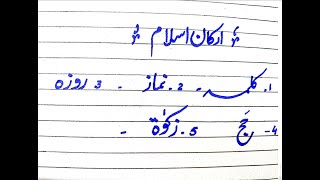 ارکان اسلام
1. کلمہ - 2. نماز - 3 روزہ
4 - حَج 5. زکوٰۃ -